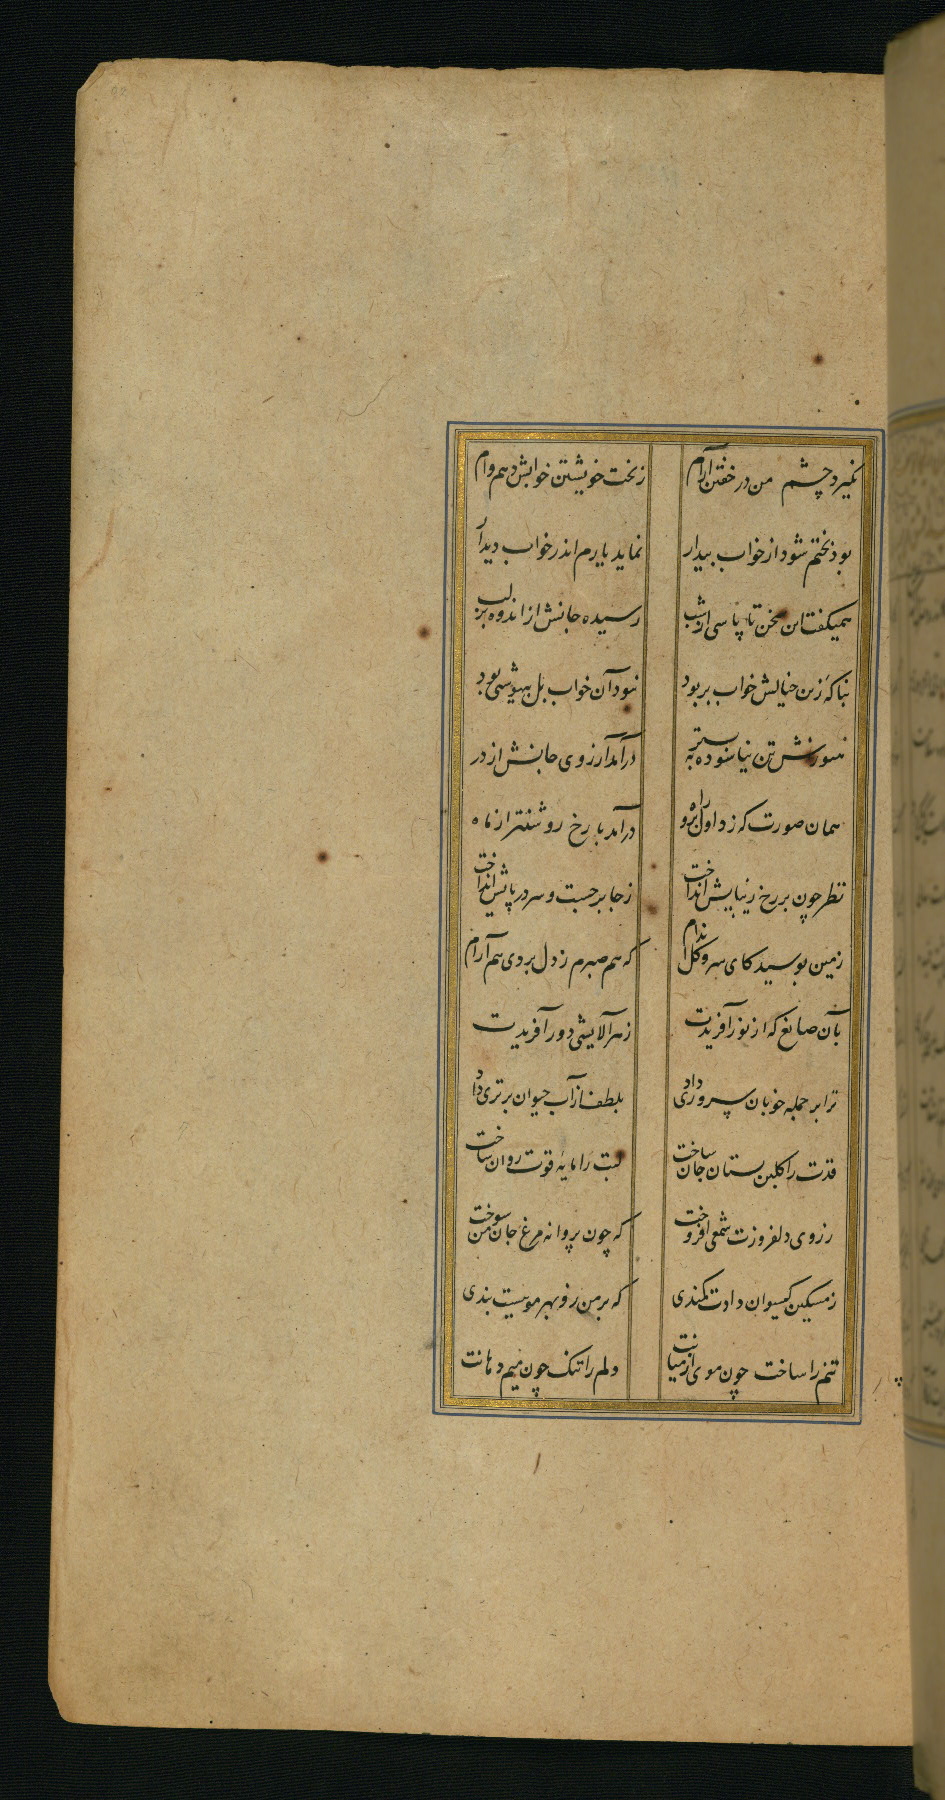 نگیرد چشم من در خفتن آرام ز بخت خویشتن خوابش دهم وام
بود بختم شود از خواب بیدار نماید یارم اندر خواب دیدار
همیگفت این سخن تا پاسی از شب رسیده جانش از اندوه بر لب
بناگه زین خیالش خواب بربود نبود آن خواب بل بیهوشیی بود
هنوزش تن نیاسوده به بستر درآمد آرزوی جانش از در
همان صورت که زد اول برو راه درآمد با رخ روشنتر از ماه
نظر چون بر رخ زیبایش انداخت ز جا برجست و سر در پایش انداخت
زمین بوسید کای سرو گل اندام که هم صبرم ز دل بردی هم آرام
بآن صانع که از نور آفریدت ز هر آلایشی دور آفریدت
ترا بر جمله خوبان سروری داد بلطف از آب حیوان برتری داد
قدت را گلبن بستان جان ساخت لبت را مایهٔ قوت روان ساخت
ز روی دلفروزت شمعی افروخت که چون پروانه مرغ جان من سوخت
ز مسکین گیسوان دادت کمندی که بر من زو بهر موییست بندی
تنم را ساخت چون موی از میانت دلم را تنگ چون میم دهانت